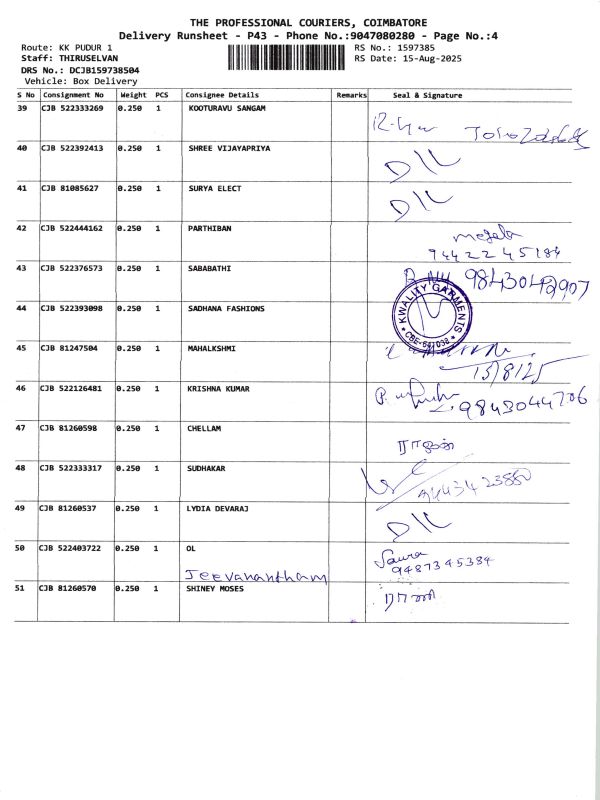 THE PROFESSIONAL COURIERS, COIMBATORE
Delivery Runsheet - P43 - Phone No.:9047080280 - Page No.:4
Route: KK PUDUR 1
RS No.: 1597385
Staff: THIRUSELVAN
RS Date: 15-Aug-2025
DRS No.: DCJB159738504
Vehicle: Box Delivery
S No Consignment No Weight PCS Consignee Details Remarks Seal & Signature
39 CJB 522333269 0.250 1 KOOTURAVU SANGAM
40 CJB 522392413 0.250 1 SHREE VIJAYAPRIYA
D/L
41 CJB 81085627 0.250 1 SURYA ELECT
D/L
42 CJB 522444162 0.250 1 PARTHIBAN
9442245184
43 CJB 522376573 0.250 1 SABABATHI
44 CJB 522393098 0.250 1 SADHANA FASHIONS
KWALITY GARMENTS
CBE-641038
45 CJB 81247504 0.250 1 MAHALKSHMI
15/8/25
46 CJB 522126481 0.250 1 KRISHNA KUMAR
9843044706
47 CJB 81260598 0.250 1 CHELLAM
48 CJB 522333317 0.250 1 SUDHAKAR
49 CJB 81260537 0.250 1 LYDIA DEVARAJ
D/L
50 CJB 522403722 0.250 1 OL
9487345384
Jeevanantham
51 CJB 81260570 0.250 1 SHINEY MOSES